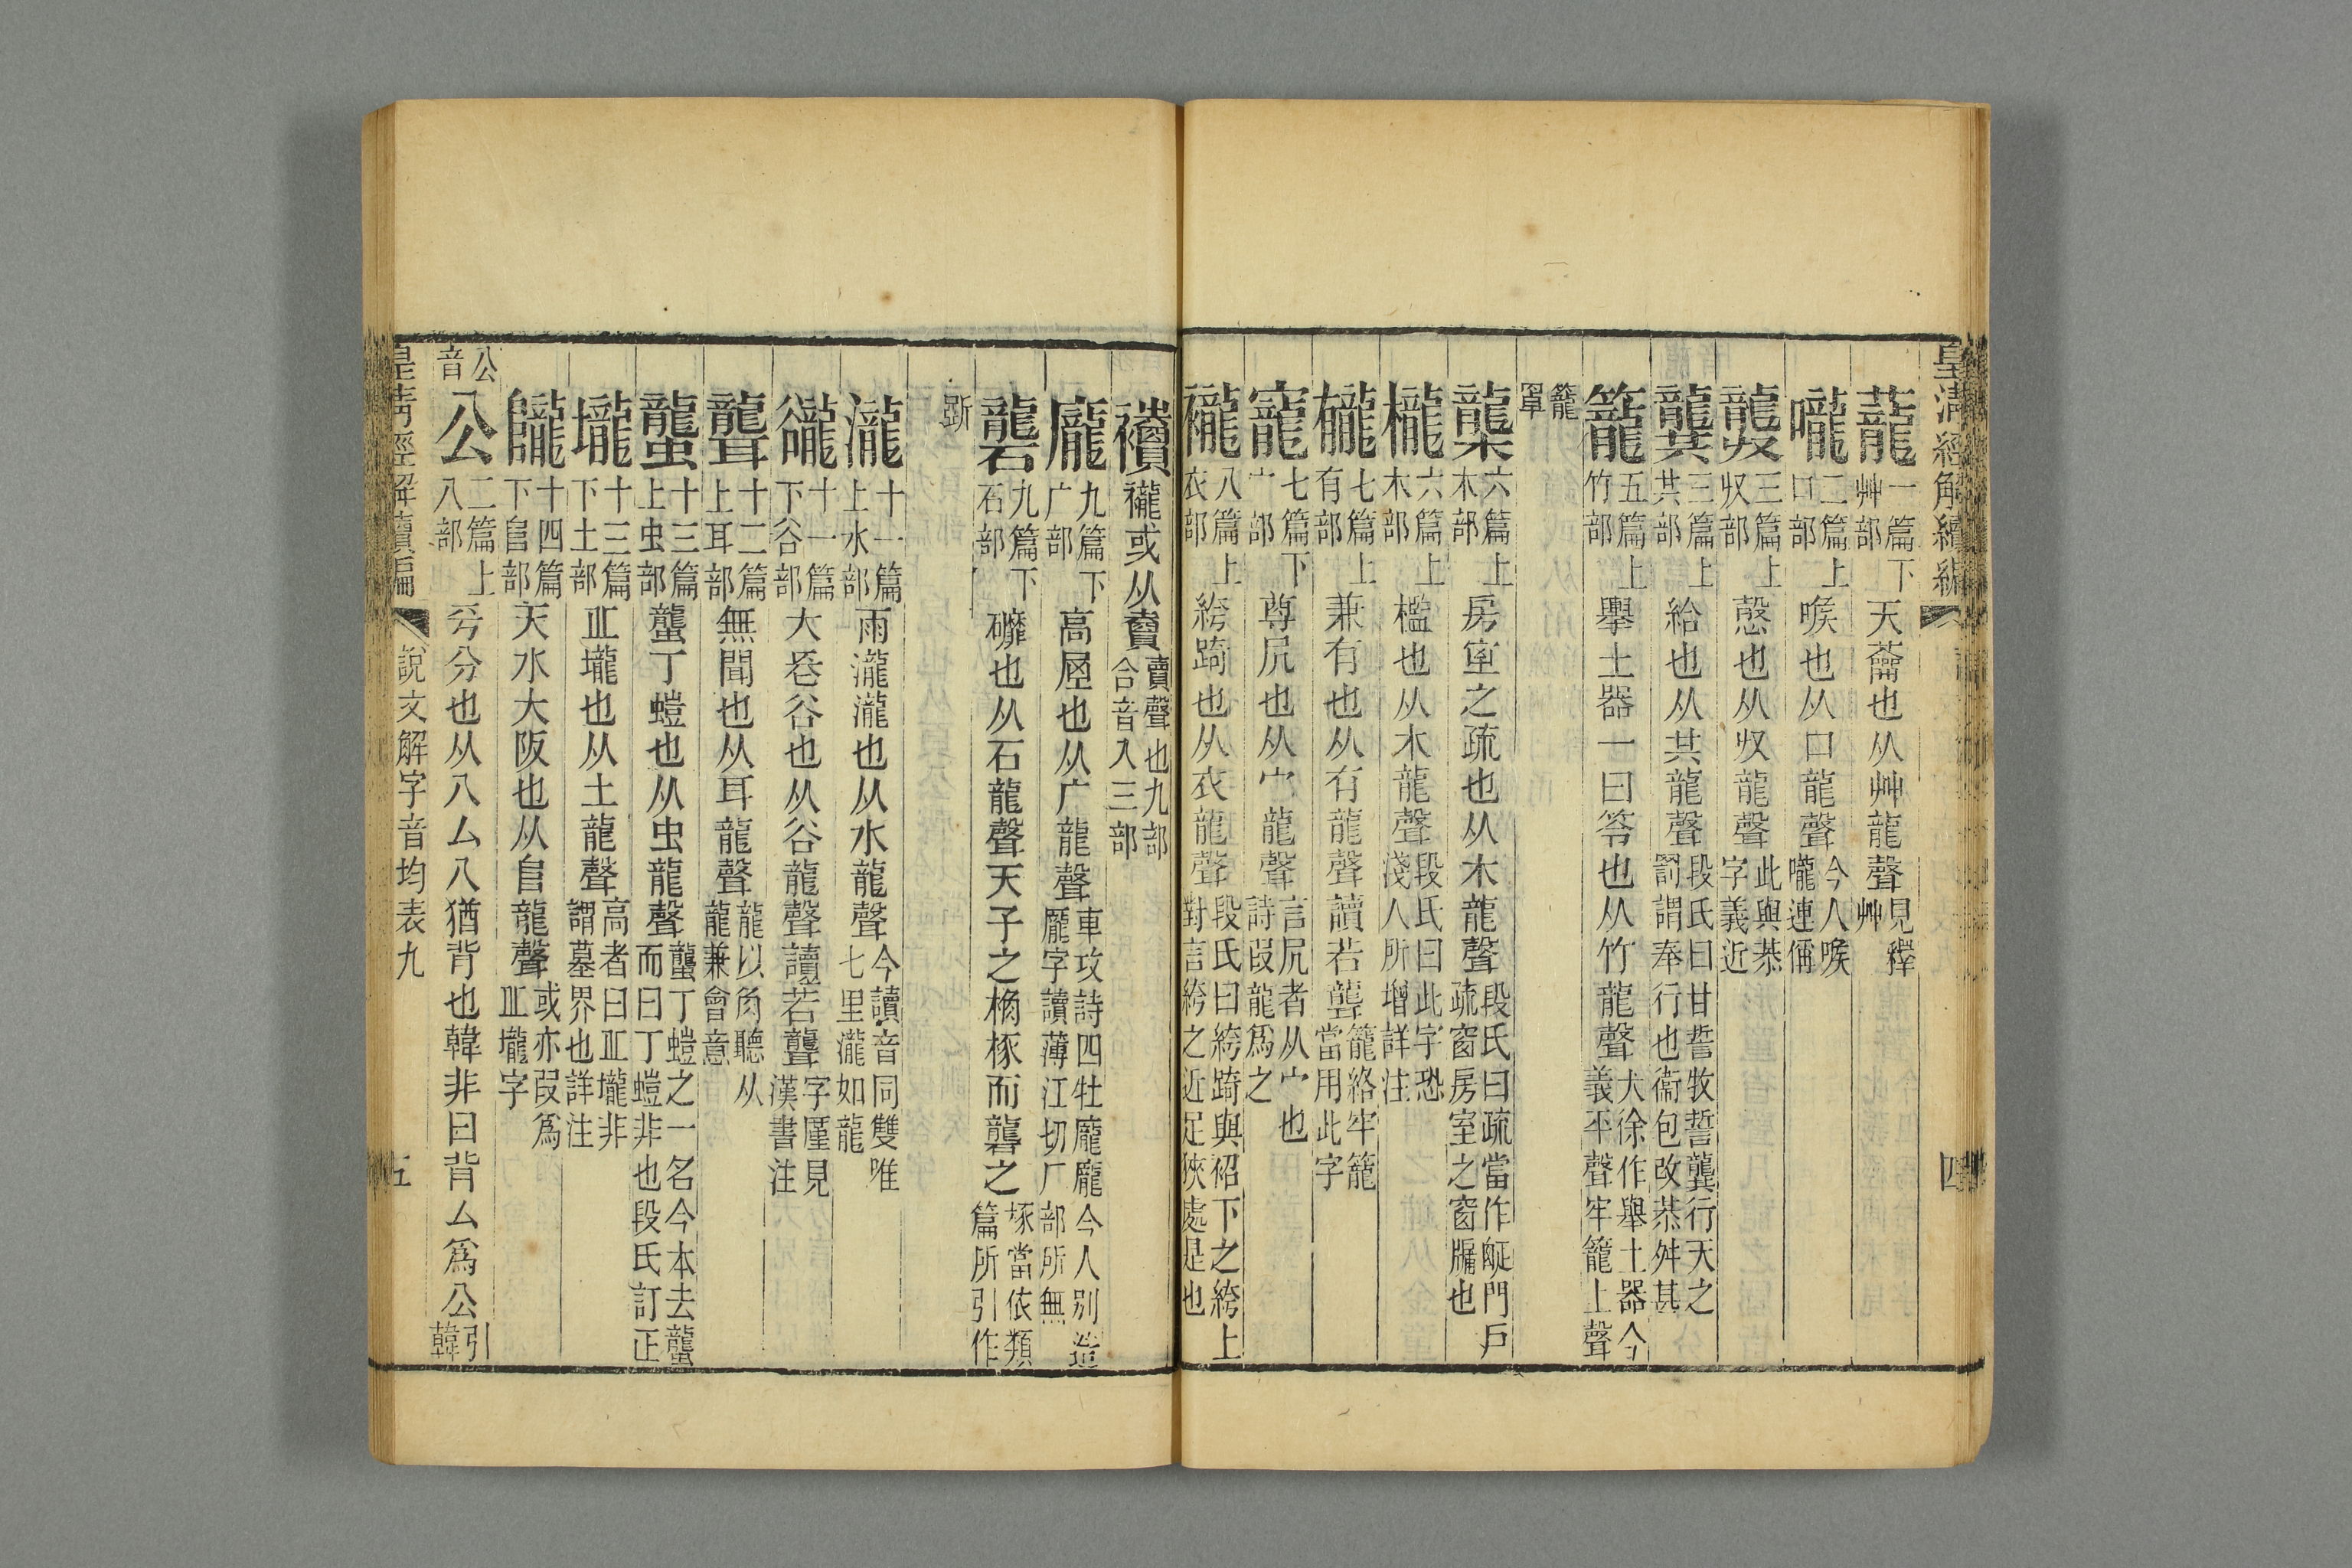 皇清經解續編 四
蘢 一篇下艸部 天蘥也从艸龍聲 見釋艸
嚨 二篇上口部 喉也从口龍聲 今人喉嚨連偁
龏 三篇上収部 愨也从収龍聲 此與恭字義近
龔 三篇上共部 給也从共龍聲 段氏曰甘誓牧誓龔行天之罰謂奉行也衞包改恭舛甚
籠 五篇上竹部 擧土器一曰笭也从竹龍聲 大徐作舉土器今義平聲牢籠上聲
籠罩
龒 六篇上木部 房室之疏也从木龍聲 段氏曰疏當作𤴙門戶疏窗房室之窗牖也
櫳 六篇上木部 檻也从木龍聲 段氏曰此字恐淺人所增詳注
㰍 七篇上有部 兼有也从有龍聲讀若聾 籠絡牢籠當用此字
寵 七篇下宀部 尊凥也从宀龍聲 言凥者从宀也詩叚龍爲之
襱 八篇上衣部 絝踦也从衣龍聲 段氏曰絝踦與袑下之絝上對言絝之近足狹處是也
襩 襱或从賣 賣聲也九部合音入三部
龐 九篇下广部 高屋也从广龍聲 車攻詩四牡龐龐今人別造厐字讀薄江切厂部所無
礱 九篇下石部 䃺也从石龍聲天子之桷椓而礱之 椓當依類篇所引作
斲
瀧 十一篇上水部 雨瀧瀧也从水龍聲 今讀音同雙唯七里瀧如龍
豅 十一篇下谷部 大長谷也从谷龍聲讀若聾 字厪見漢書注
聾 十二篇上耳部 無聞也从耳龍聲 龍以角聽从龍兼會意
蠪 十三篇上虫部 蠪丁螘也从虫龍聲 蠪丁螘之一名今本去蠪而曰丁螘非也段氏訂正
壠 十三篇下土部 丠壠也从土龍聲 高者曰丠壠非謂墓界也詳注
隴 十四篇下𨸏部 天水大阪也从𨸏龍聲 或亦叚爲丠壠字
公音
公 二篇上八部 平分也从八厶八猶背也韓非曰背厶爲公 引韓
皇清經解續編 說文解字音均表九 五